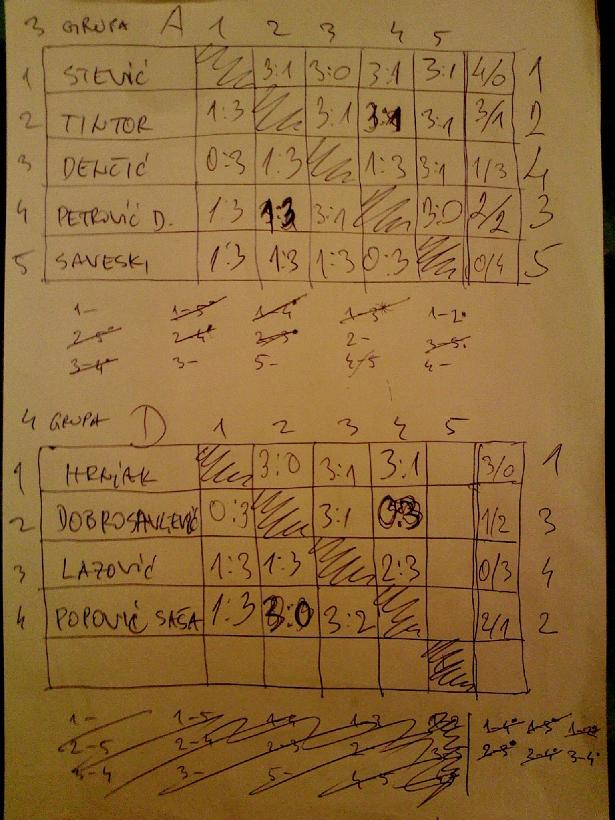 3 GRUPA A 1 2 3 4 5
1 STEVIĆ 3:1 3:0 3:1 3:1 4/0 1
2 TINTOR 1:3 3:1 3:1 3:1 3/1 2
3 DENČIĆ 0:3 1:3 1:3 3:1 1/3 4
4 PETROVIĆ D. 1:3 1:3 3:1 3:0 2/2 3
5 SAVESKI 1:3 1:3 1:3 0:3 0/4 5
1- 1-5 1-4 1-3 1-2
2-5 2-4 2-3 2- 3-5
3-4 3- 5- 4/5 4-
4 GRUPA D 1 2 3 4 5
1 HRNJAK 3:0 3:1 3:1 3/0 1
2 0:3 3:1 0:3 1/2 3
3 LAZOVIĆ 1:3 1:3 2:3 0/3 4
4 POPOVIĆ SAŠA 1:3 3:0 3:2 2/1 2
1- 1-5 1-4 1-3 1-4 1-3 1-2
2-5 2-4 2-3 2- 2-3 2-4 3-4
3-4 3- 5- 4-5